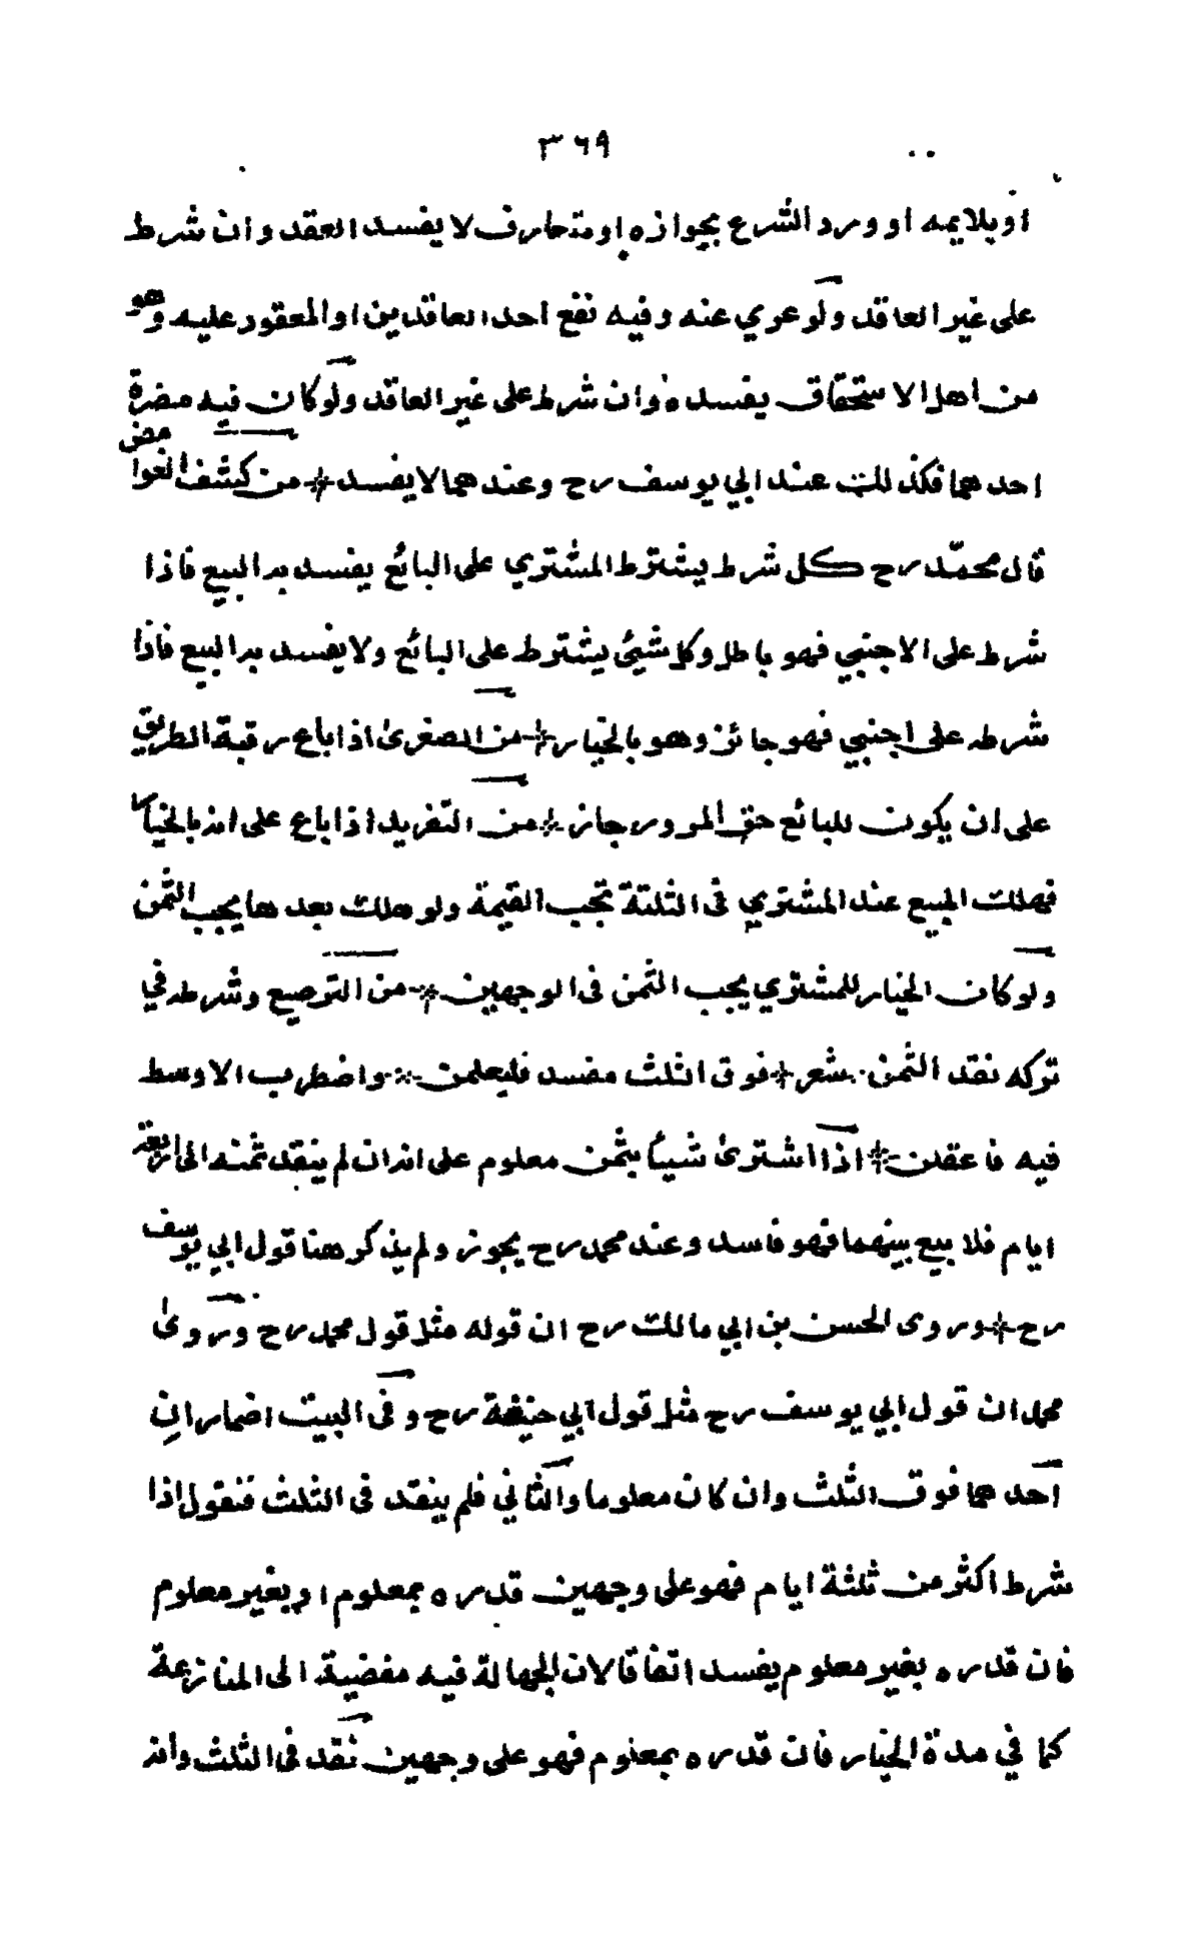 ٣٦٩
او يلايمه او ورد الشرع بجوازه او متعارف لا يفسد العقد وان شرط
على غير العاقد ولو عري عنه وفيه نفع احد العاقدين او المعقود عليه وهو
من اهل الاستحقاق يفسده وان شرط على غير العاقد ولو كان فيه مضرة
احدهما فكذلك عند ابي يوسف رح وعندهما لا يفسد * من كشف الغوامض
قال محمّد رح كل شرط يشترط المشتري على البائع يفسد به البيع فاذا
شرط على الاجنبي فهو باطل وكل شيئ يشترط على البائع ولا يفسد به البيع فاذا
شرط على اجنبي فهو جائز وهو بالخيار * من الصغرى اذا باع رقبة الطريق
على ان يكون للبائع حق المرور جاز * من التفريد اذا باع على انه بالخيار
فهلك المبيع عند المشتري فى الثلثة تجب القيمة ولو هلك بعدها يجب الثمن
ولو كان الخيار للمشتري يجب الثمن فى الوجهين * من التوصيع وشرطه في
تركه نقد الثمن شعر * فوق الثلث مفسد فليعلمن * واضطرب الاوسط
فيه فاعقلن * اذا اشترى شيئا بثمن معلوم على انه ان لم ينقد ثمنه الى اربعة
ايام فلا بيع بينهما فهو فاسد وعند محمد رح يجوز ولم يذكر هنا قول ابي يوسف
رح * وروى الحسن بن ابي مالك رح ان قوله مثل قول محمد رح وروى
محمد ان قول ابي يوسف رح مثل قول ابي حنيفة رح وفى البيت اضماران
احدهما فوق الثلث وان كان معلوما والثاني فلم ينقد فى الثلث فنقول اذا
شرط اكثر من ثلثة ايام فهو على وجهين قدره بمعلوم او بغير معلوم
فان قدره بغير معلوم يفسد اتفاقا لان الجهالة فيه مفضية الى المنازعة
كما في مدة الخيار فان قدره بمعلوم فهو على وجهين نقد فى الثلث وانه